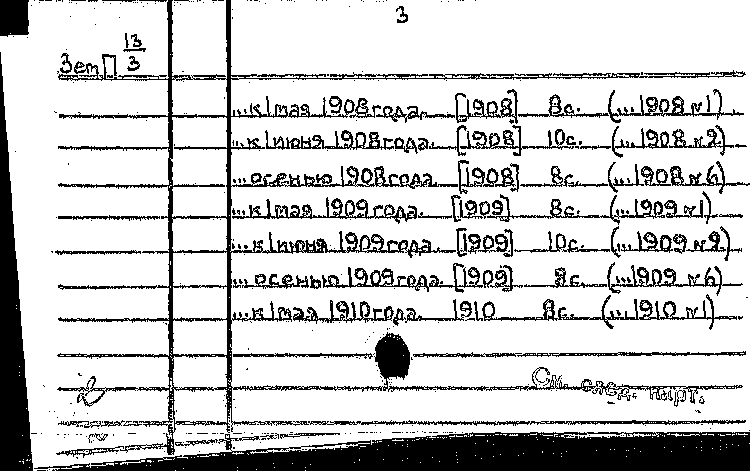 3
Зет П 13/3
...к 1 мая 1908 года. [1908] 8с. (...1908 №1).
...к 1 июня 1908 года. [1908] 10с. (...1908 №2)
...осенью 1908 года. [1908] 8с. (...1908 №6)
...к 1 мая 1909 года. [1909] 8с. (...1909 №1)
...к 1 июня 1909 года. [1909] 10с. (...1909 №2)
...осенью 1909 года. [1909] 8с. (...1909 №6)
...к 1 мая 1910 года. 1910 8с. (...1910 №1)
2
См. след. карт.